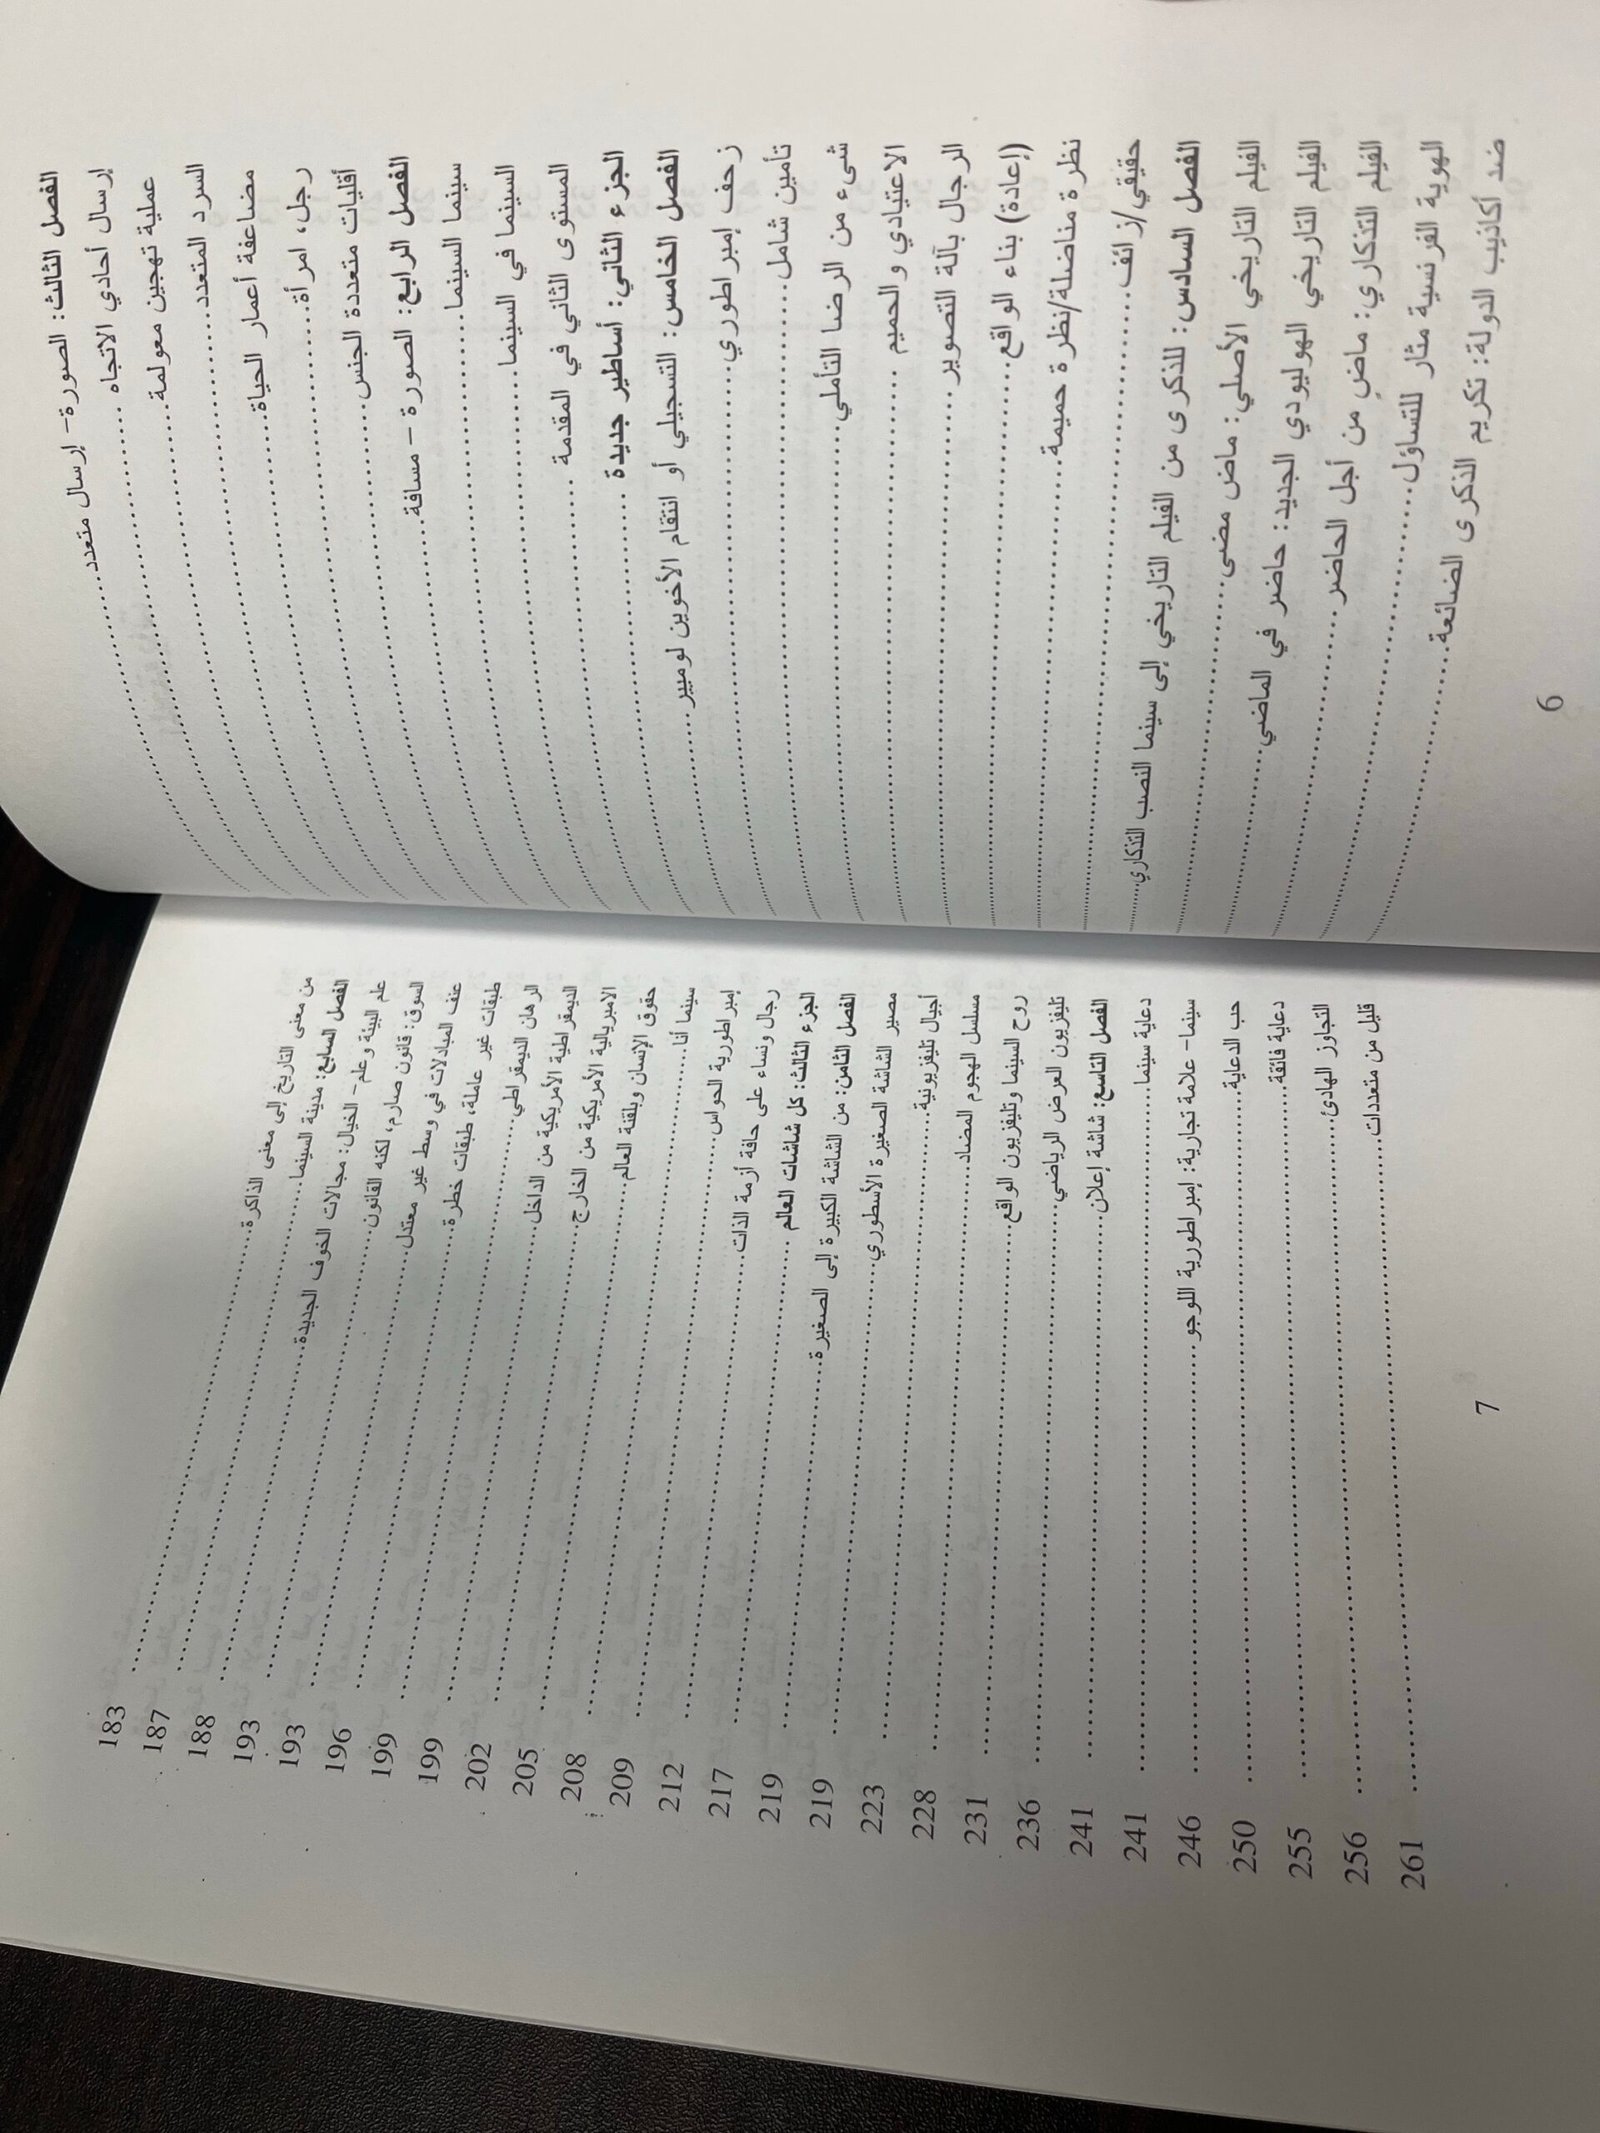 الفصل الثالث: الصورة- إرسال متعدد
إرسال أحادي الاتجاه
عملية تهجين معولمة
السرد المتعدد
مضاعفة أعمار الحياة
رجل، امرأة
أقليات متعددة الجنس
الفصل الرابع: الصورة – مسافة
سينما السينما
السينما في السينما
المستوى الثاني في المقدمة
الجزء الثاني: أساطير جديدة
الفصل الخامس: التسجيلي أو انتقام الأخوين لوميير
زحف إمبراطوري
تأمين شامل
شىء من الرضا التأملي
الاعتيادي والحميم
الرجال بآلة التصوير
(إعادة) بناء الواقع
نظرة مناضلة/نظرة حميمة
حقيقي/زائف
الفصل السادس: للذكرى من الفيلم التاريخي إلى سينما النصب التذكاري
الفيلم التاريخي الأصلي: ماض مضى
الفيلم التاريخي الهوليودي الجديد: حاضر في الماضي
الفيلم التذكاري: ماضٍ من أجل الحاضر
الهوية الفرنسية مثار للتساؤل
ضد أكاذيب الدولة: تكريم الذكرى الضائعة
6
من معنى التاريخ إلى معنى الذاكرة 183
الفصل السابع: مدينة السينما 187
علم البيئة وعلم- الخيال: مجالات الخوف الجديدة 188
السوق: قانون صارم، لكنه القانون 193
عنف المبادلات في وسط غير معتدل 193
طبقات غير عاملة، طبقات خطرة 196
الرهان الديمقراطي 199
الديمقراطية الأمريكية من الداخل 199
الامبريالية الأمريكية من الخارج 202
حقوق الإنسان وبلقنة العالم 205
سينما أنا 208
إمبراطورية الحواس 209
رجال ونساء على حافة أزمة الذات 212
الجزء الثالث: كل شاشات العالم 217
الفصل الثامن: من الشاشة الكبيرة إلى الصغيرة 219
مصير الشاشة الصغيرة الأسطوري 219
أجيال تليفزيونية 223
مسلسل الهجوم المضاد 228
روح السينما وتليفزيون الواقع 231
تليفزيون العرض الرياضي 236
الفصل التاسع: شاشة إعلان 241
دعاية سينما 241
سينما- علامة تجارية: إمبراطورية اللوجو 246
حب الدعاية 250
دعاية فائقة 255
التجاوز الهادئ 256
قليل من متعددات 261
7